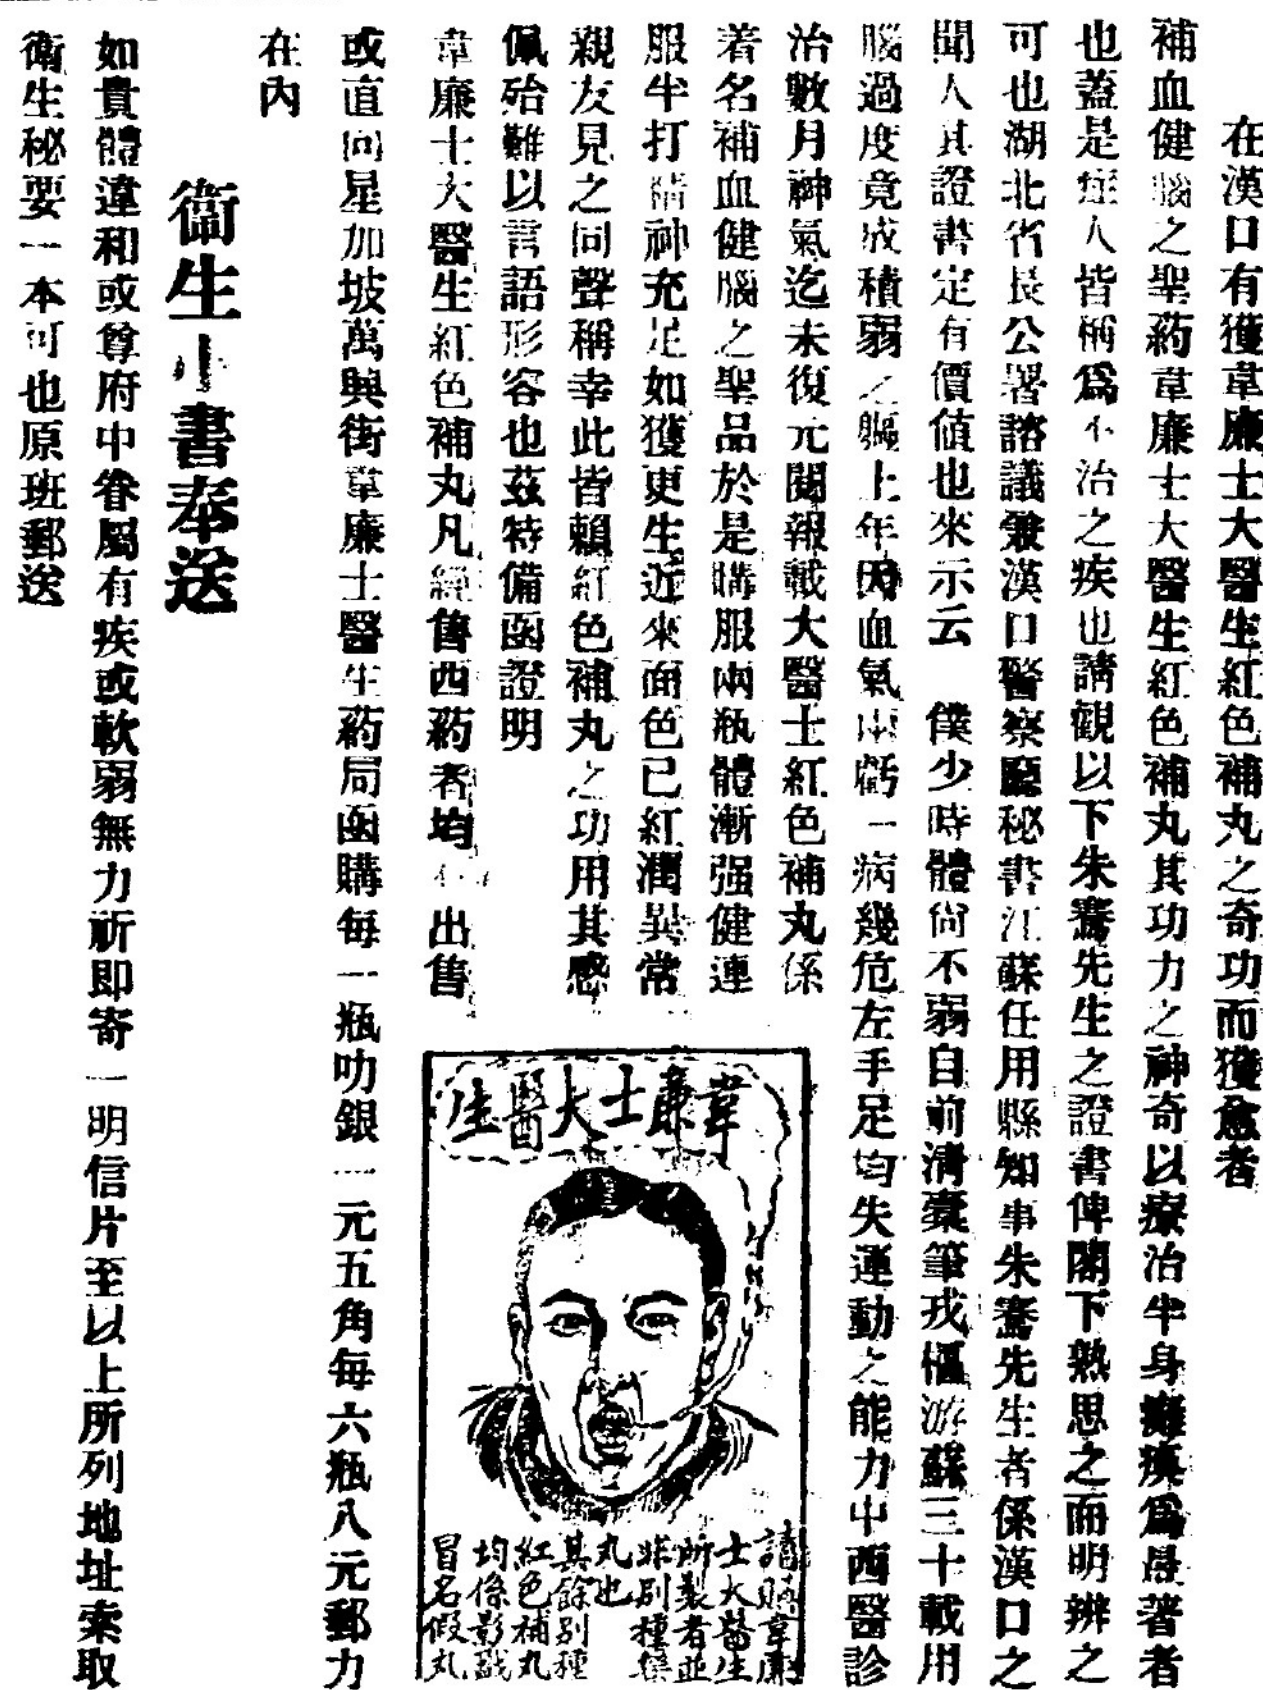 在漢口有獲韋廉士大醫生紅色補丸之奇功而獲愈者
補血健腦之聖葯韋廉士大醫生紅色補丸其功力之神奇以療治半身癱瘓爲最著者
也蓋是症人皆稱爲不治之疾也請觀以下朱騫先生之證書俾閣下熟思之而明辨之
可也湖北省長公署諮議兼漢口警察廳秘書江蘇任用縣知事朱騫先生者係漢口之
聞人其證書定有價値也來示云 僕少時體尙不弱自前淸橐筆戎幄游蘇三十載用
腦過度竟成積弱之軀上年因血氣兩虧一病幾危左手足均失運動之能力中西醫診
治數月神氣迄未復元閱報載大醫士紅色補丸係
着名補血健腦之聖品於是購服兩瓶體漸强健連
服半打精神充足如獲更生近來面色已紅潤異常
親友見之同聲稱幸此皆賴紅色補丸之功用其感
佩殆難以言語形容也茲特備函證明
韋廉士大醫生紅色補丸凡經售西葯者均 出售
或直向星加坡萬興街韋廉士醫生葯局函購每一瓶叻銀一元五角每六瓶八元郵力
在內
衞生小書奉送
如貴體違和或尊府中眷屬有疾或軟弱無力祈即寄一明信片至以上所列地址索取
衞生秘要一本可也原班郵送
韋廉士大醫生
請購韋廉
士大醫生
所製者並
非別種藥
丸也
其餘別種
紅色補丸
均係影戤
冒名假丸